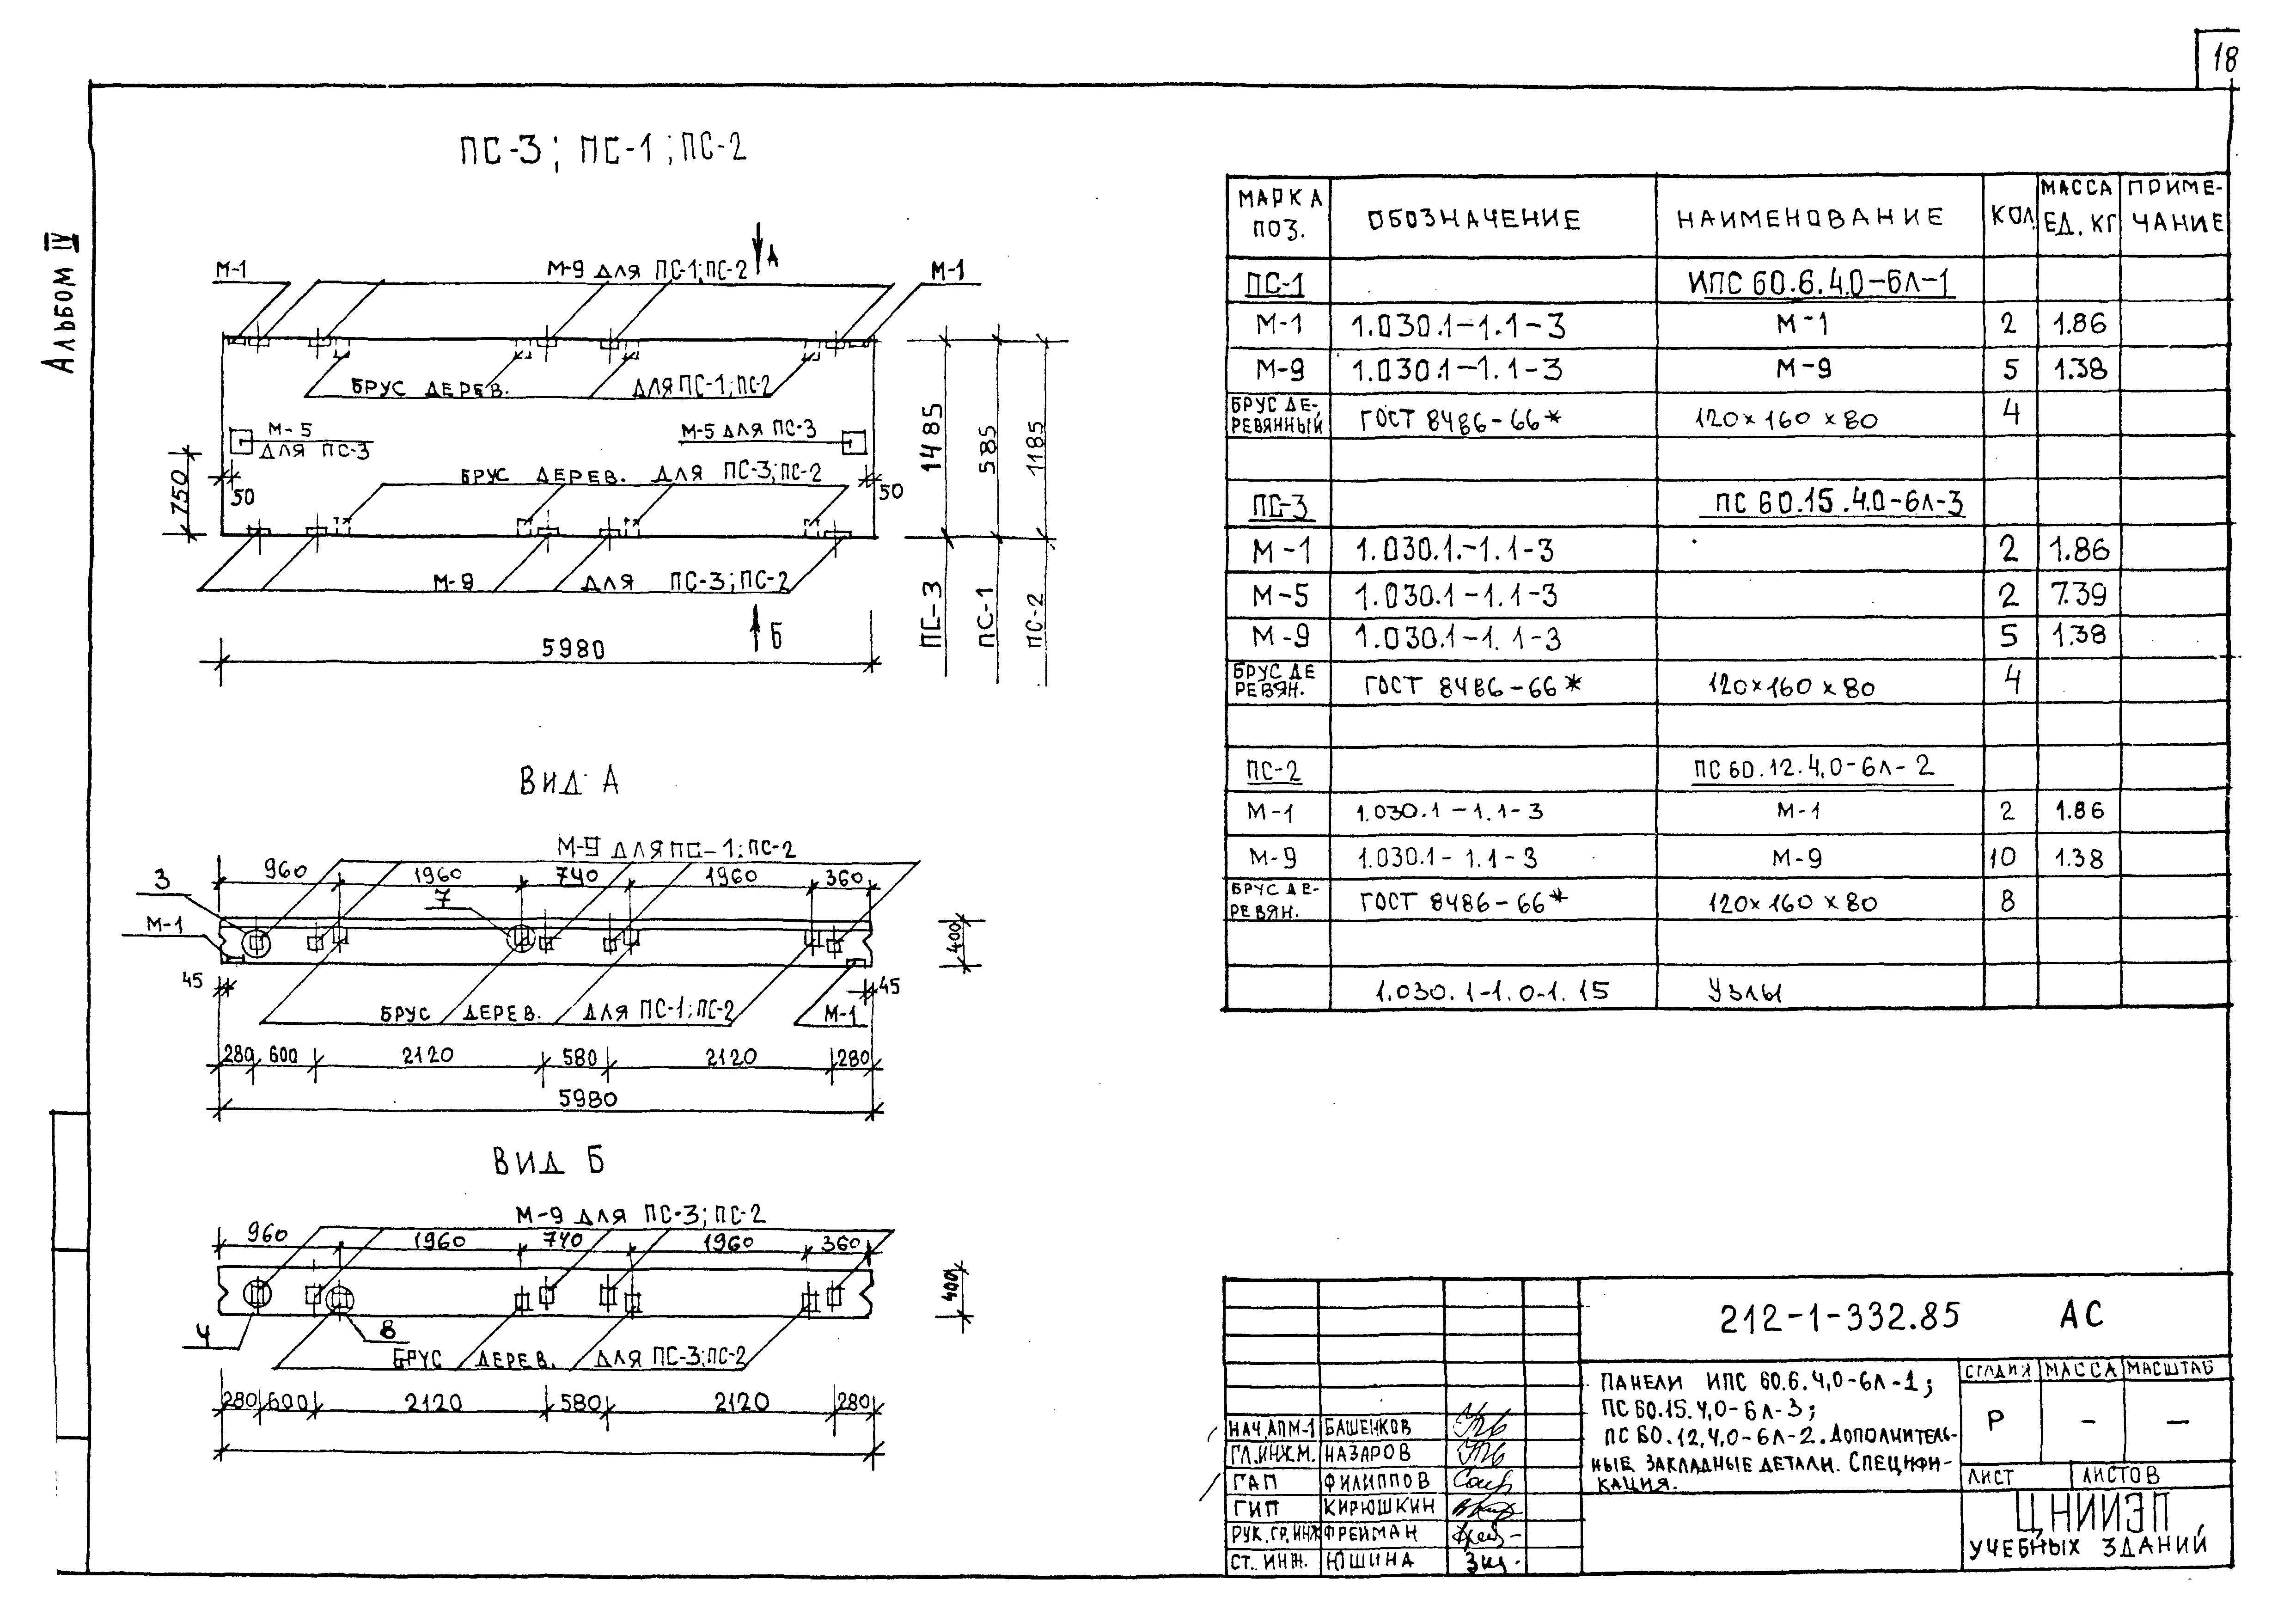 18
Альбом IV
ПС-3; ПС-1; ПС-2
М-1
М-9 для ПС-1; ПС-2
А
М-1
БРУС ДЕРЕВ. ДЛЯ ПС-1; ПС-2
М-5
ДЛЯ ПС-3
М-5 ДЛЯ ПС-3
БРУС ДЕРЕВ. ДЛЯ ПС-3; ПС-2
750
50
50
М-9 ДЛЯ ПС-3; ПС-2
Б
5980
1485
585
1185
ПС-3
ПС-1
ПС-2
Вид А
М-9 ДЛЯ ПС-1; ПС-2
960 1960 740 1960 360
3
7
М-1
400
45
45
БРУС ДЕРЕВ. ДЛЯ ПС-1; ПС-2
М-1
280 600 2120 580 2120 280
5980
Вид Б
М-9 для ПС-3; ПС-2
960 1960 740 1960 360
400
4
8
БРУС ДЕРЕВ. ДЛЯ ПС-3; ПС-2
280 600 2120 580 2120 280
МАРКА ПОЗ. ОБОЗНАЧЕНИЕ НАИМЕНОВАНИЕ КОЛ. МАССА ЕД. КГ ПРИМЕ-ЧАНИЕ
ПС-1 ИПС 60.6.4.0-6Л-1
М-1 1.030.1-1.1-3 М-1 2 1.86
М-9 1.030.1-1.1-3 М-9 5 1.38
БРУС ДЕ-РЕВЯННЫЙ ГОСТ 8486-66* 120×160×80 4
ПС-3 ПС 60.15.4.0-6Л-3
М-1 1.030.1.-1.1-3 2 1.86
М-5 1.030.1-1.1-3 2 7.39
М-9 1.030.1-1.1-3 5 1.38
БРУС ДЕ РЕВЯН. ГОСТ 8486-66* 120×160×80 4
ПС-2 ПС 60.12.4,0-6Л-2
М-1 1.030.1-1.1-3 М-1 2 1.86
М-9 1.030.1-1.1-3 М-9 10 1.38
БРУС ДЕ-РЕВЯН. ГОСТ 8486-66* 120×160×80 8
1.030.1-1.0-1.15 Узлы
212-1-332.85 АС
ПАНЕЛИ ИПС 60.6.4,0-6Л-1;
ПС 60.15.4,0-6Л-3;
ПС 60.12.4,0-6Л-2. ДОПОЛНИТЕЛЬ-
НЫЕ ЗАКЛАДНЫЕ ДЕТАЛИ. СПЕЦИФИ-
КАЦИЯ.
СТАДИЯ МАССА МАСШТАБ
Р - -
ЛИСТ ЛИСТОВ
ЦНИИЭП
УЧЕБНЫХ ЗДАНИЙ
НАЧ. АПМ-1 БАШЕНКОВ
ГЛ.ИНЖ.М. НАЗАРОВ
ГАП ФИЛИППОВ
ГИП КИРЮШКИН
РУК.ГР.ИНЖ ФРЕЙМАН
СТ. ИНЖ. ЮШИНА